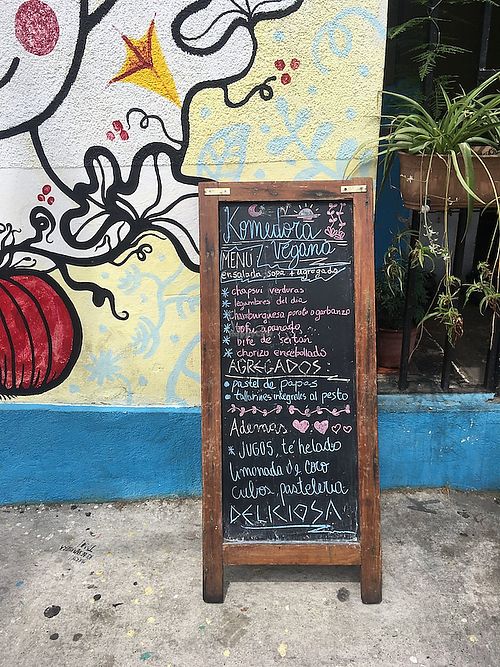 Komedora
MENÚ Vegano
ensalada sopa + agregado
* chapsui verduras
* legumbres del dia
* hamburguesa poroto o garbanzo
* tofu apanado
* bife de seitán
* chorizo encebollado
AGREGADOS:
• pastel de papas
• tallarines integrales al pesto
Ademas
* JUGOS, té helado
limonada de coco
cultivos, pasteleria
DELICIOSA